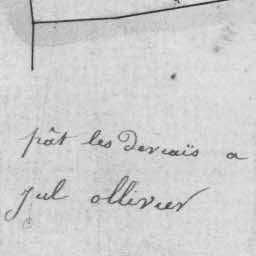 pât les derciaïs a
jul ollivier